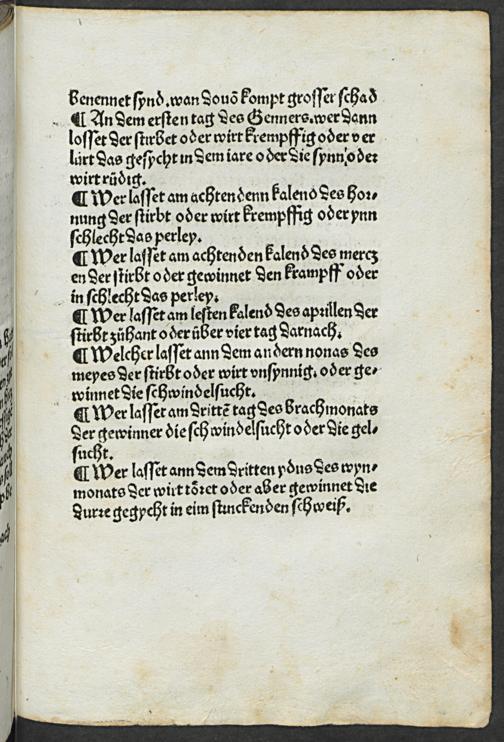 benennet synd. wan douõ kompt grosser schad
¶ An dem ersten tag des Genners. wer dann
losset der stirbet oder wirt krempffig oder ver
lürt das gesycht in dem iare oder die synn oder
wirt rüdig.
¶ Wer lasset am achtendenn kalend des hor⸗
nung der stirbt oder wirt krempffig oder ynn
schlecht das perley.
¶ Wer lasset am achtenden kalend des mercz
en der stirbt oder gewinnet den krampff oder
in schlecht das perley.
¶ Wer lasset am lesten kalend des aprillen der
stirbt zůhant oder über vier tag darnach.
¶ Welcher lasset ann dem andern nonas des
meyes der stirbt oder wirt vnsynnig. oder ge⸗
winnet die schwindelsucht.
¶ Wer lasset am drittẽ tag des brachmonats
der gewinner die schwindelsucht oder die gel⸗
sucht.
¶ Wer lasset ann dem dritten ydus des wyn⸗
monats der wirt tôret oder aber gewinnet die
durre gegycht in eim stinckenden schweiß.